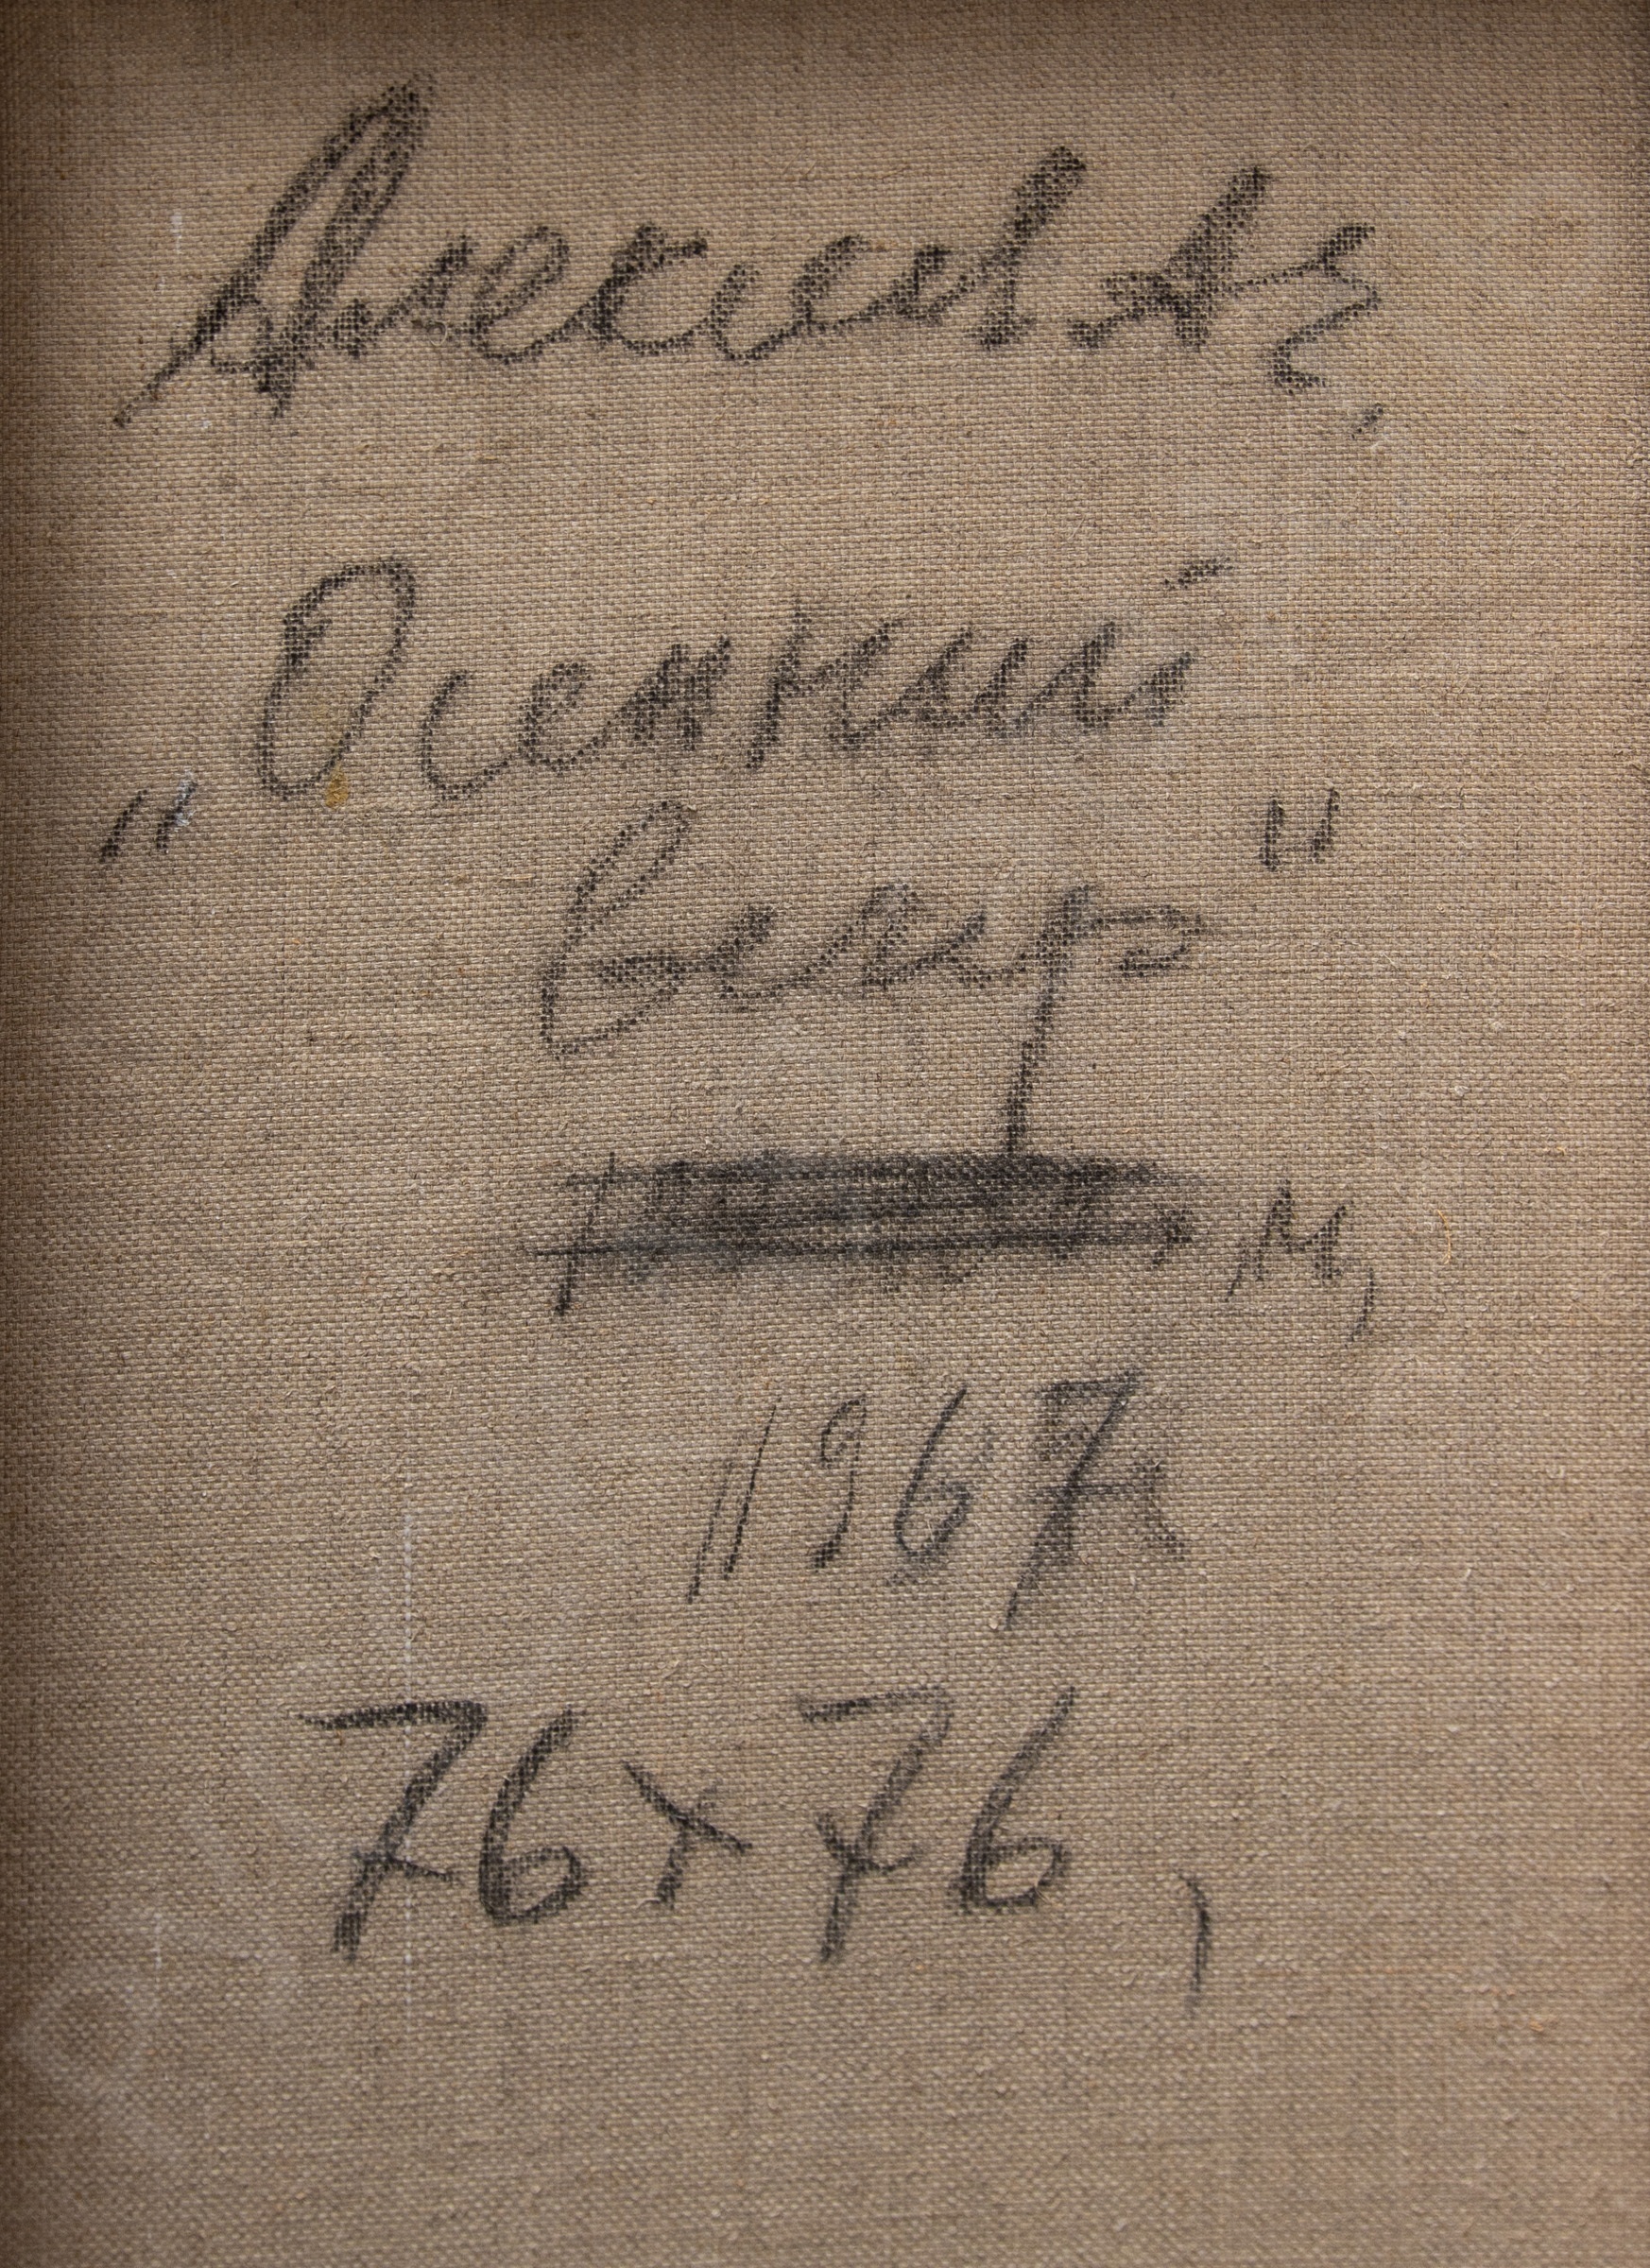 Алексеев
„Осенний
вечер"
м,
1967
76х76,